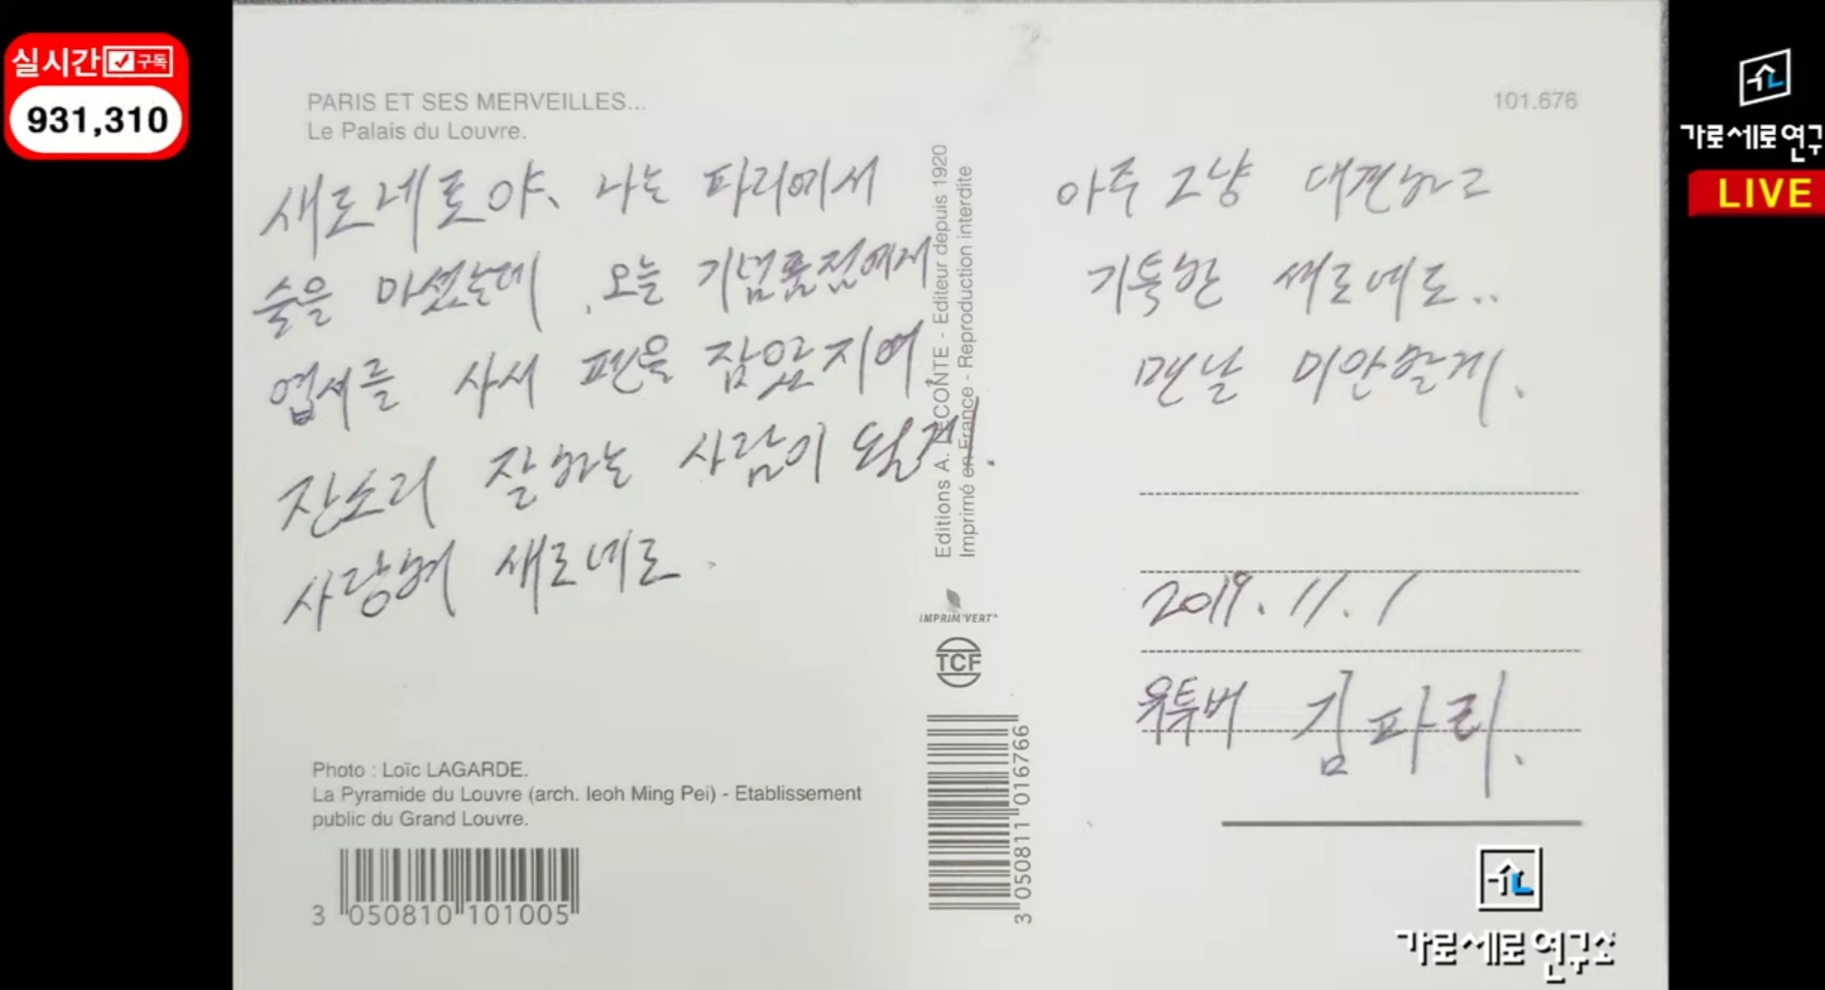 실시간 구독
931,310
PARIS ET SES MERVEILLES...
Le Palais du Louvre.
새로네로야, 나는 파리에서
술을 마셨는데, 오늘 기념품점에서
엽서를 사서 펜을 잡았지여.
잔소리 잘하는 사람이 될게.
사랑해 새로네로.
Photo : Loïc LAGARDE.
La Pyramide du Louvre (arch. Ieoh Ming Pei) - Etablissement
public du Grand Louvre.
3 050810 101005
Editions A. LECONTE - Editeur depuis 1920
Imprimé en France - Reproduction interdite
IMPRIM'VERT®
TCF
3 050811 016766
101.676
아주 그냥 대견하고
기특한 새로네로..
맨날 미안할게.
2019. 11. 1
유투버 김파리.
가로세로연구
LIVE
가로세로연구소